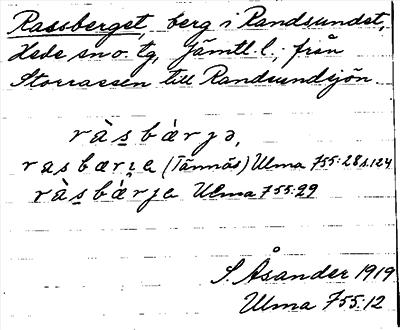 Rassberget, berg i Randsundet,
Hede sn o. tg, Jämtl. l.; från
Storrassen till Randsundsjön.
ràs̱bàrjə,
rasbærı̯a (Tännäs) Ulma 755:28 s. 124
ràs̱bàrja Ulma 755:29
S. Åsander 1919
Ulma 755:12